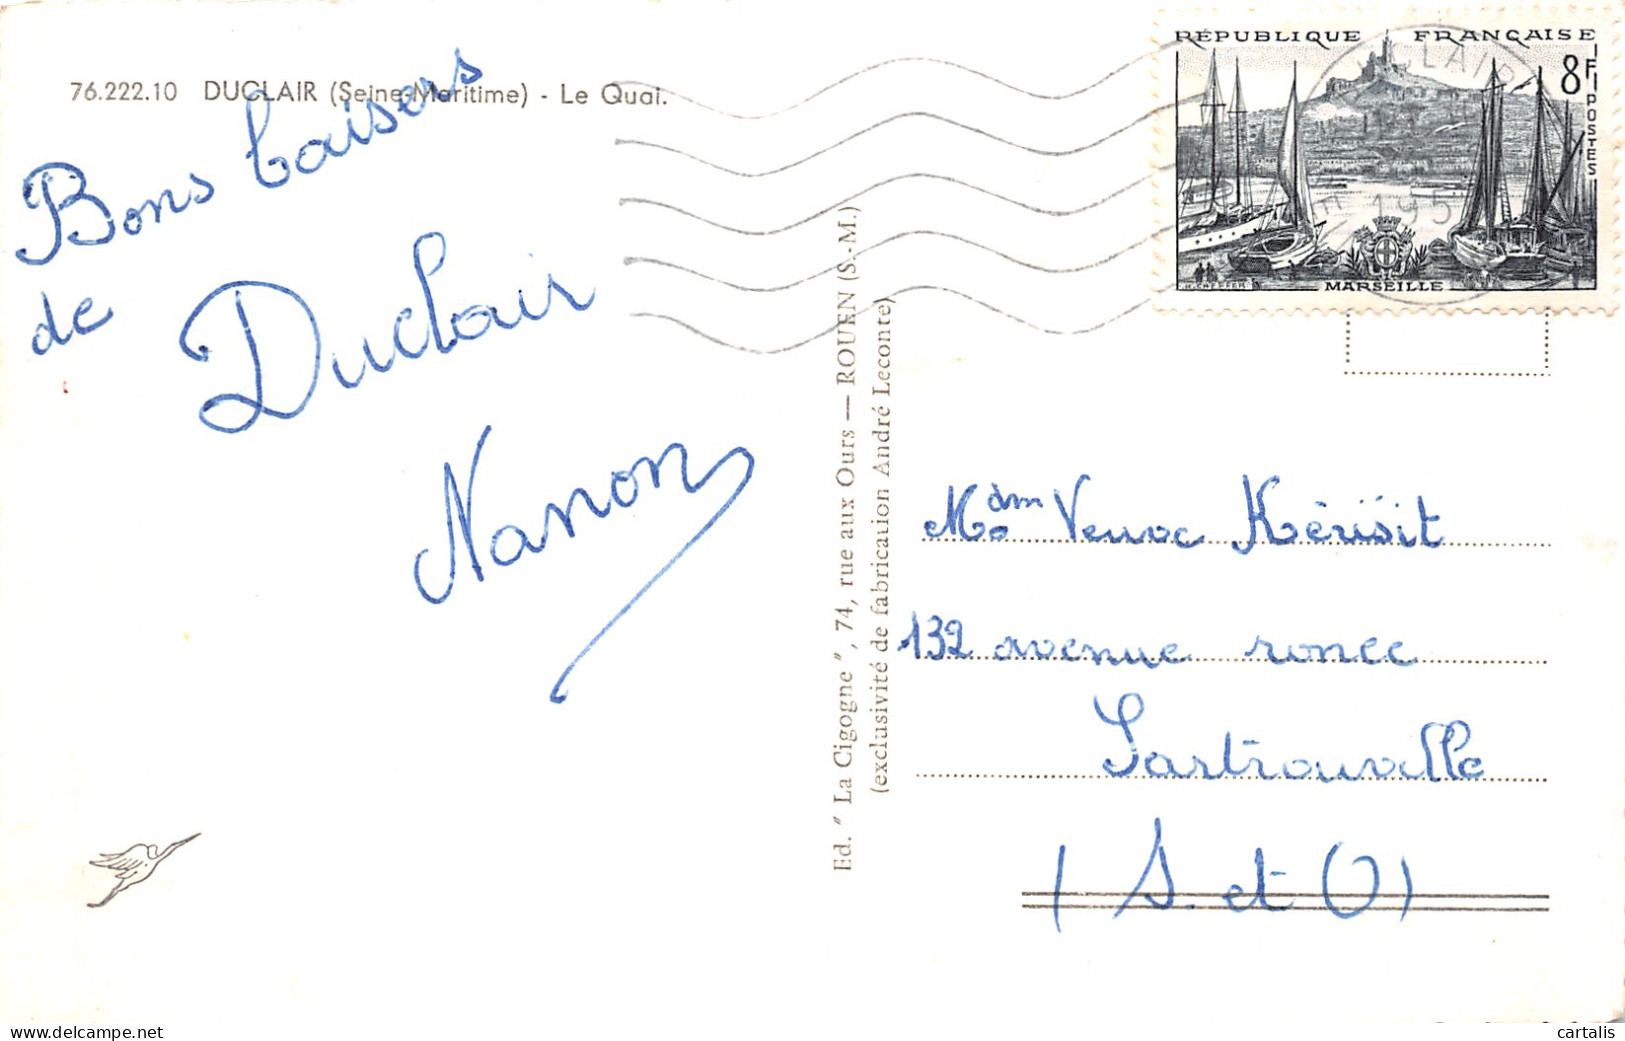 76.222.10 DUCLAIR (Seine-Maritime) - Le Quai.
Bons baisers
de
Duclair
Nanon
Ed. " La Cigogne ", 74, rue aux Ours — ROUEN (S.-M.)
(exclusivité de fabrication André Leconte)
RÉPUBLIQUE FRANÇAISE
8F
POSTES
MARSEILLE
Mdm Veuve Kérisit
132 avenue
Sartrouville
(S. et O)
cartalis